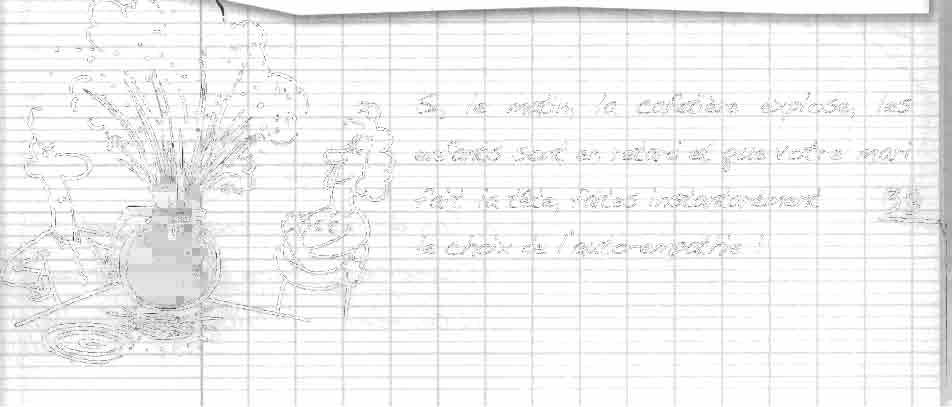 Si, le matin, la cafetière explose, les
enfants sont en retard et que votre mari
fait la tête, faites instantanément
le choix de l'auto-empathie !